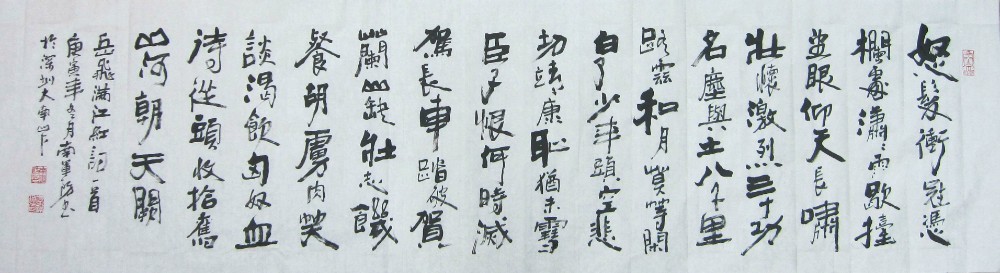 怒髮衝冠憑
欄處瀟々雨歇擡
望眼仰天長嘯
壯懷激烈三十功
名塵與土八千里
路雲和月莫等閑
白了少年頭空悲
切靖康恥猶未雪
臣子恨何時滅
駕長車踏破賀
蘭山缺壯志饑
餐胡虜肉笑
談渴飲匈奴血
待從頭收拾舊
山河朝天闕
岳飛滿江紅詞一首
庚寅年冬月
於深圳大南山下